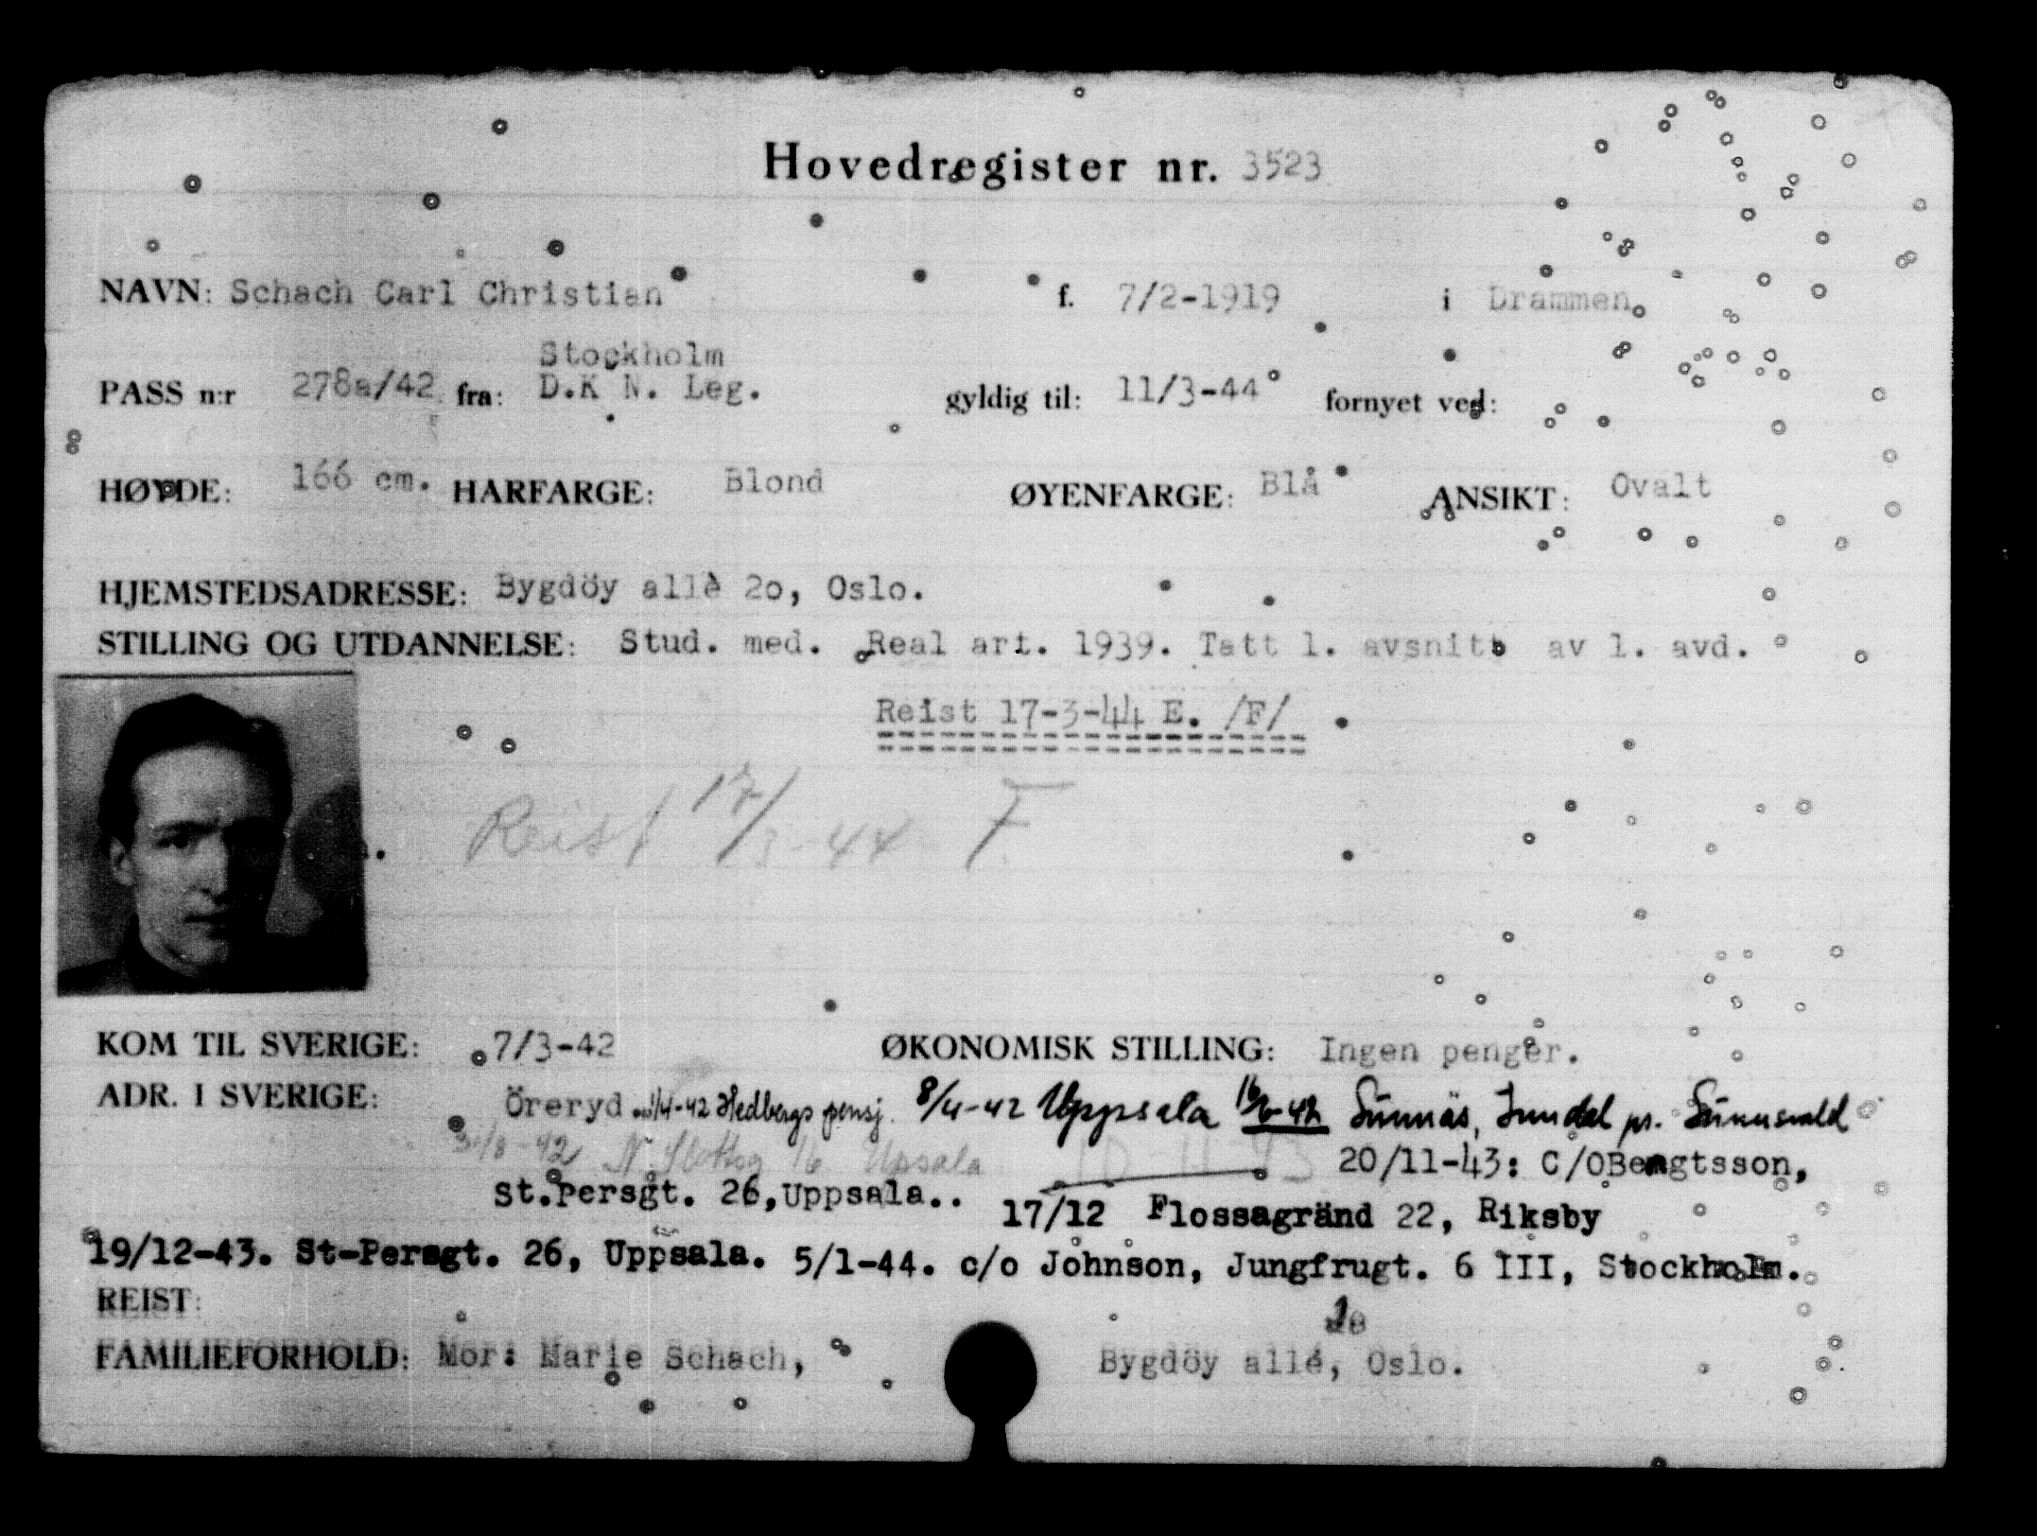 Hovedregister nr. 3523
NAVN: Schach Carl Christian f. 7/2-1919 i Drammen.
Stockholm
PASS n:r 278a/42 fra: D.K N. Leg. gyldig til: 11/3-44 fornyet ved:
HØYDE: 166 cm. HARFARGE: Blond ØYENFARGE: Blå ANSIKT: Ovalt
HJEMSTEDSADRESSE: Bygdöy allè 2o, Oslo.
STILLING OG UTDANNELSE: Stud. med. Real art. 1939. Tatt 1. avsnitt av 1. avd.
Reist 17-3-44 E. /F/
Reist 17/3-44 F
KOM TIL SVERIGE: 7/3-42 ØKONOMISK STILLING: Ingen penger.
ADR. I SVERIGE: Öreryd /4-42 Hedbergs pensj. 8/4-42 Uppsala 16/6-42 Sunnäs, pr.
/8-42 N. Slottsg 16 Upsala 10-11-43 20/11-43: C/OBengtsson,
St.Persgt. 26,Uppsala.. 17/12 Flossagränd 22, Riksby
19/12-43. St-Persgt. 26, Uppsala. 5/1-44. c/o Johnson, Jungfrugt. 6 III, Stockholm.
REIST:
FAMILIEFORHOLD: Mor: Marie Schach, Bygdöy allé, Oslo.